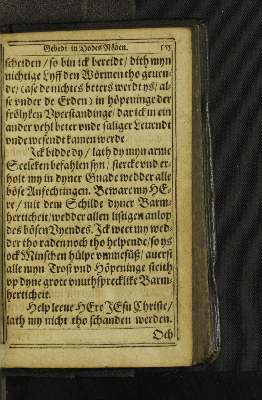 Gebede in Dodes Nöden. 
scheiden / so bin ick bereidt / dith myn
nichtige Lyff den Wörmen tho geuen-
de / (alse de nichtes beters werdt ys / al-
se vnder de Erden) in höpeninge der
frölyken Vperstandinge / dar ick in ein
ander vehl beter vnde saliger Leuendt
vnde wesendt kamen werde.
Ick bidde dy / lath dy myn arme
Seeleken befahlen syn / stercke vnd er-
holt my in dyner Gnade wedder alle
böse Anfechtingen. Beware my HE-
re / mit dem Schilde dyner Barm-
herticheit / wedder allen listigen anlop
des bösen Vyendes. Ick weet my wed-
der tho raden noch tho helpende / so ys
ock Minschen hülpe vmmesüß / auerst
alle myn Trost vnd Höpeninge steith
vp dyne grote vnuthsprecklike Barm-
herticheit.
Help leeue HEre JEsu Christe /
lath my nicht tho schanden werden.
Och